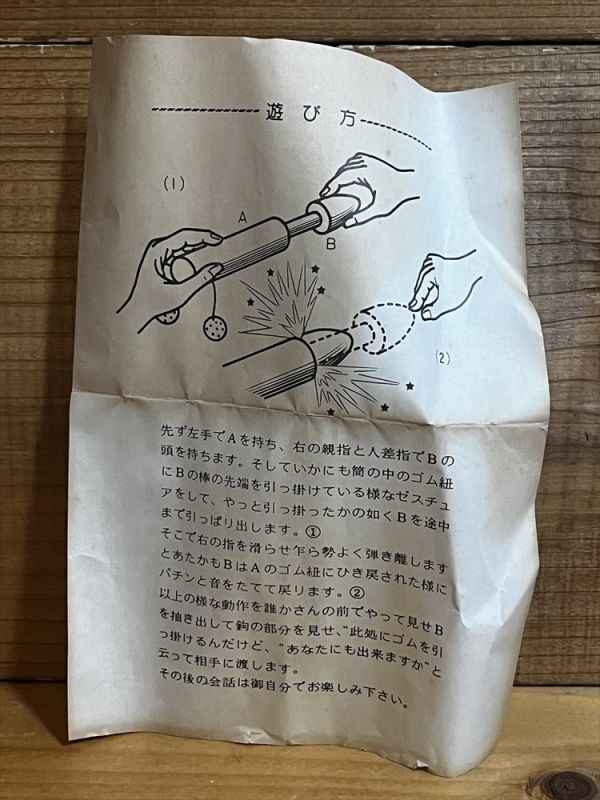 遊び方
(1)
A
B
(2)
先ず左手でAを持ち、右の親指と人差指でBの
頭を持ちます。そしていかにも筒の中のゴム紐
にBの棒の先端を引っ掛けている様なゼスチュ
アをして、やっと引っ掛ったかの如くBを途中
まで引っぱり出します。①
そこで右の指を滑らせ乍ら勢よく弾き離します
とあたかもBはAのゴム紐にひき戻された様に
パチンと音をたてて戻ります。②
以上の様な動作を誰かさんの前でやって見せB
を抽き出して鉤の部分を見せ、“此処にゴムを引
っ掛けるんだけど、“あなたにも出来ますか”と
云って相手に渡します。
その後の会話は御自分でお楽しみ下さい。